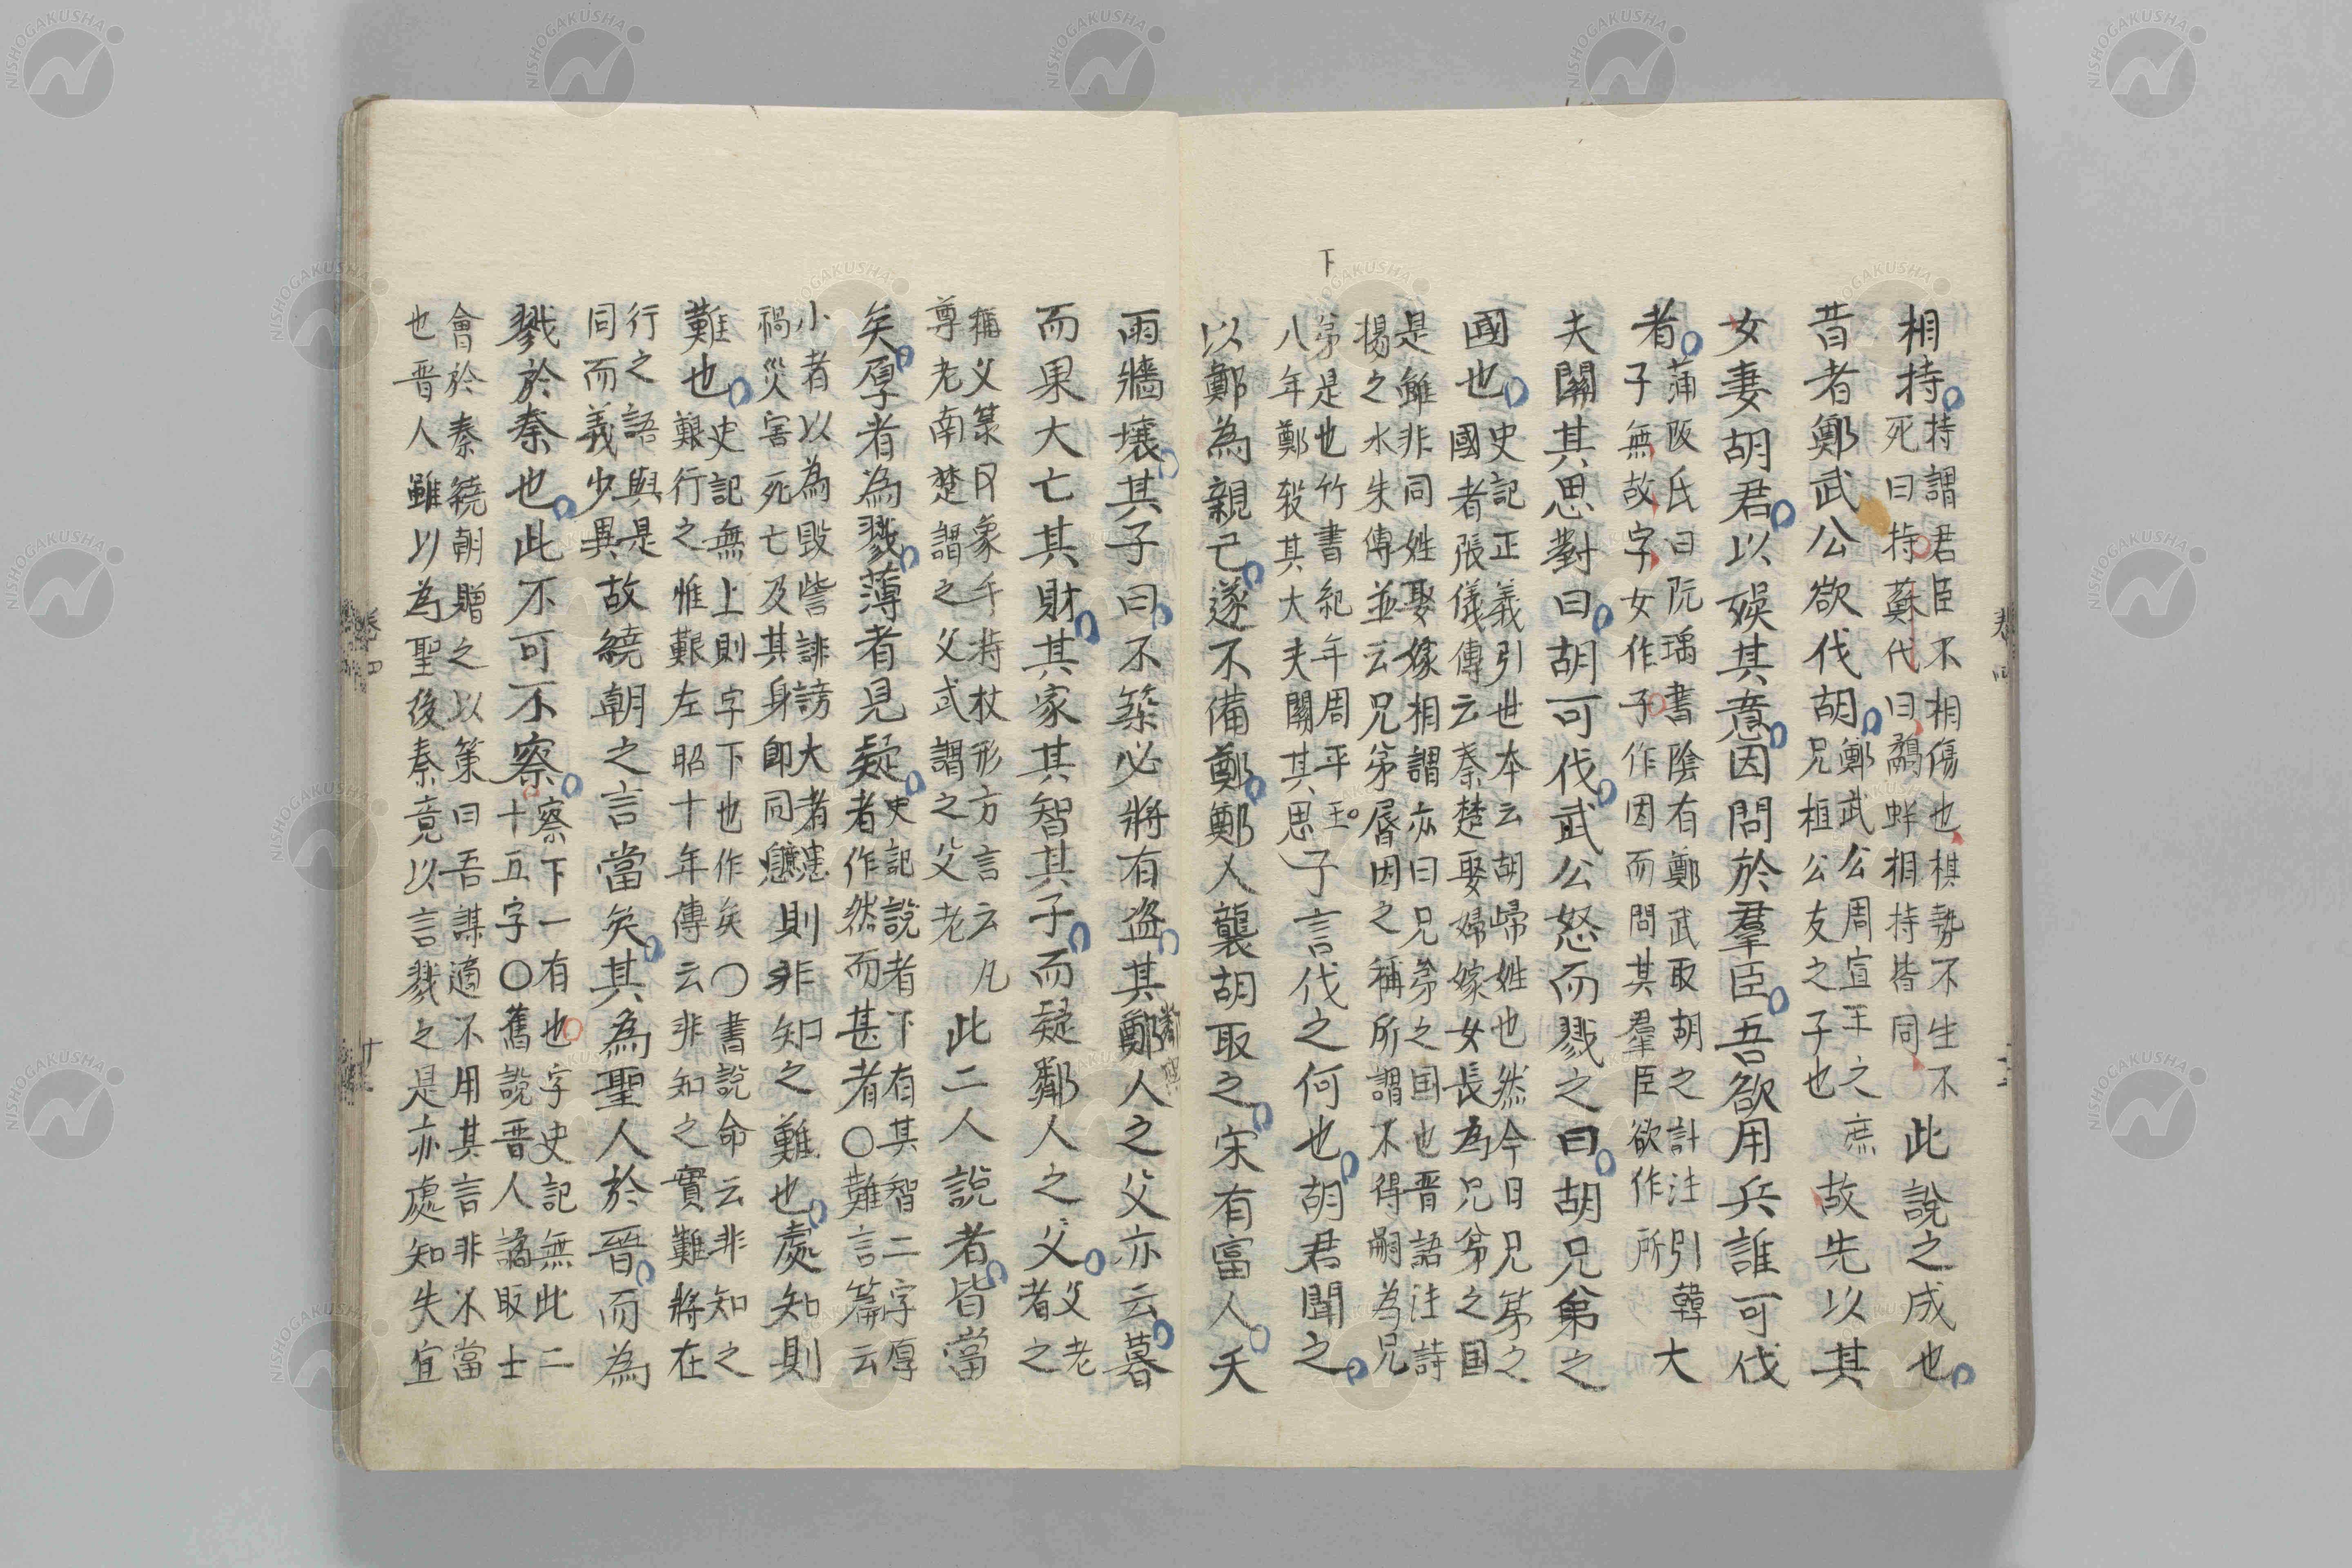 相持持謂君臣不相傷也棋勢不生不
死曰持蘇代曰鷸蚌相持皆同此說之成也
昔者鄭武公欲伐胡鄭武公周宣王之庶
兄桓公友之子也故先以其
女妻胡君以娛其意因問於羣臣吾欲用兵誰可伐
者蒲阪氏曰阮瑀書陰有鄭武取胡之計注引韓
子無故字女作子作因而問其羣臣欲作所大
夫關其思對曰胡可伐武公怒而戮之曰胡兄弟之
國也史記正義引世本云胡歸姓也然今日兄弟之
國者張儀傳云秦楚娶婦嫁女長為兄弟之国
是雖非同姓娶嫁相謂亦曰兄弟之国也晋語注詩
揚之水朱傳並云兄弟昏因之稱所謂不得嗣為兄
弟是也竹書紀年周平王
八年鄭殺其大夫關其思子言伐之何也胡君聞之
下
以鄭為親己遂不備鄭鄭人襲胡取之宋有富人天
雨牆壞其子曰不築必將有盗其鄭人之父亦云暮
而果大亡其財其家其智其子而疑鄰人之父父老
者之
稱父篆曰象手持杖形方言云凡
尊老南楚謂之父或謂之父老此二人說者皆當
矣厚者為戮薄者見疑史記說者下有其智二字厚
者作然而甚者〇難言篇云
小者以為毀訾誹謗大者患
禍災害死亡及其身即同則非知之難也處知則
難也史記無上則字下也作矣〇書說命云非知之
艱行之惟艱左昭十年傳云非知之實難將在
行之語與是
同而義少異故繞朝之言當矣其為聖人於晉而為
戮於秦也此不可不察察下一有也字史記無此二
十五字〇舊說晋人譎取士
會於秦繞朝贈之以策曰吾謀適不用其言非不當
也晋人雖以為聖後秦竟以言戮之是亦處知失宜